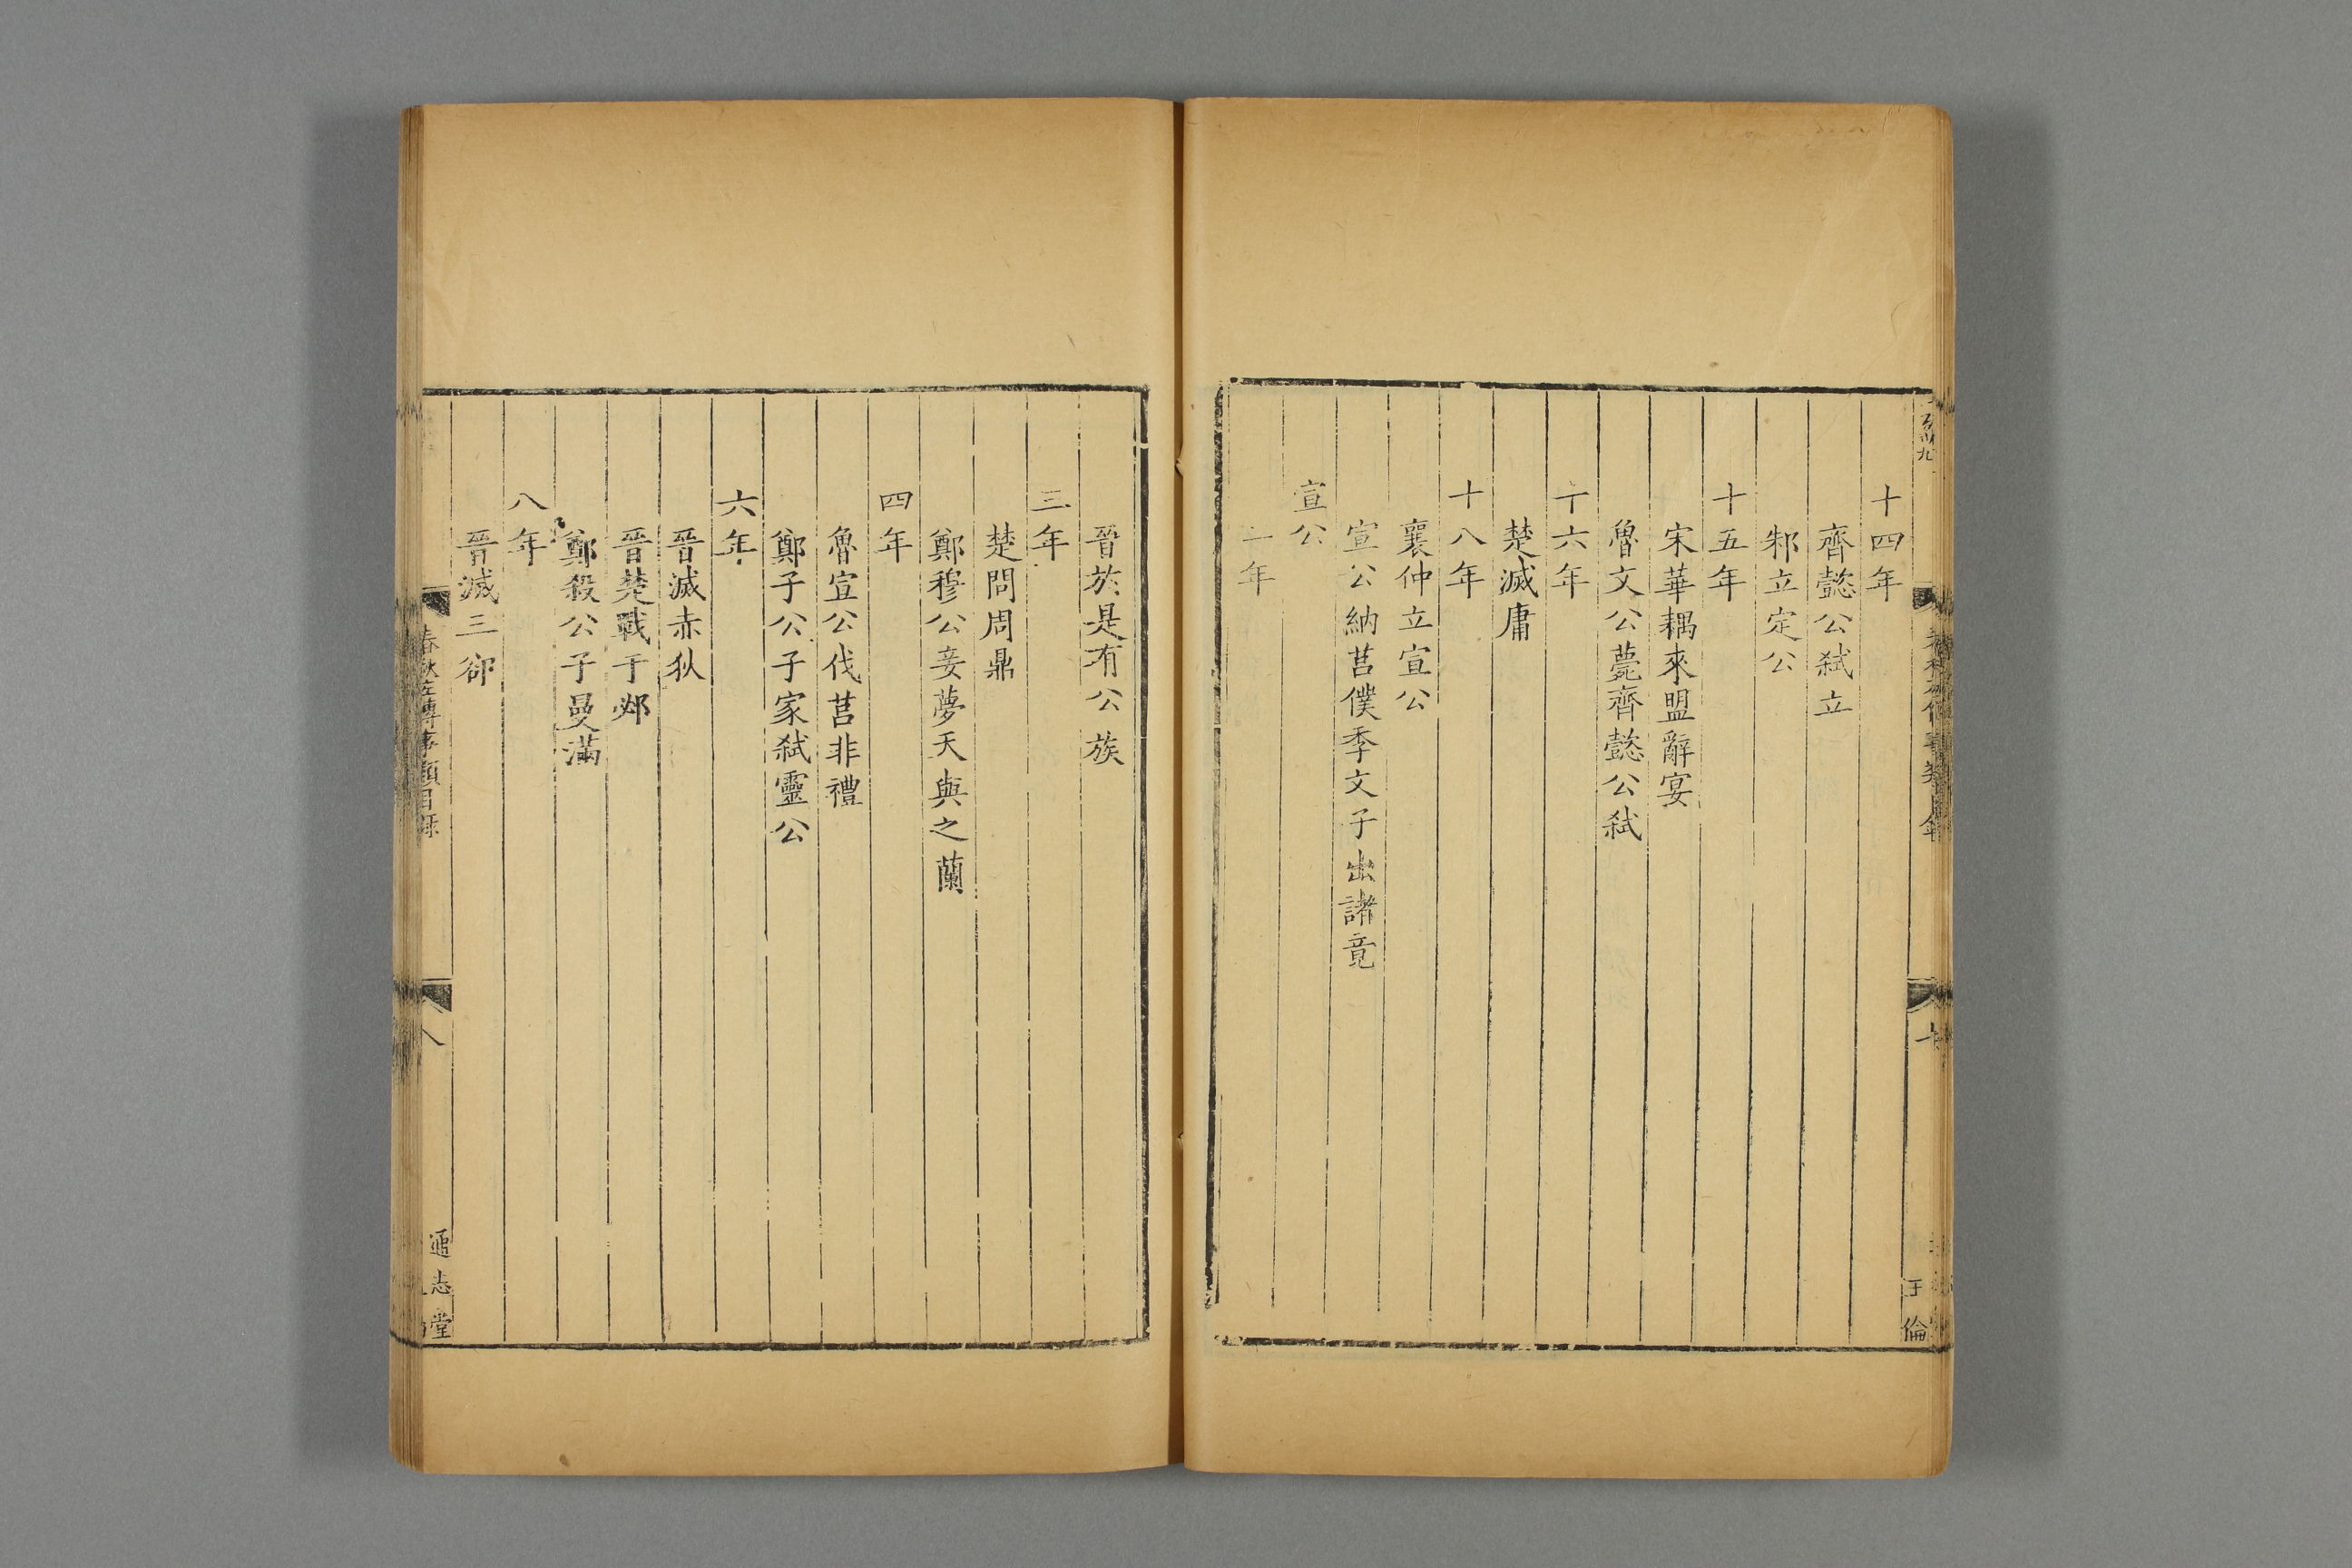 十四年
齊懿公弒立
邾立定公
十五年
宋華耦來盟辭宴
魯文公薨齊懿公弒
十六年
楚滅庸
十八年
襄仲立宣公
宣公納莒僕季文子出諸竟
宣公
二年
晉於是有公族
三年
楚問周鼎
鄭穆公妾夢天與之蘭
四年
魯宣公伐莒非禮
鄭子公子家弒靈公
六年
晉滅赤狄
晉楚戰于邲
鄭殺公子曼滿
八年
晉滅三郤
春秋左傳事類目錄
八
通志堂